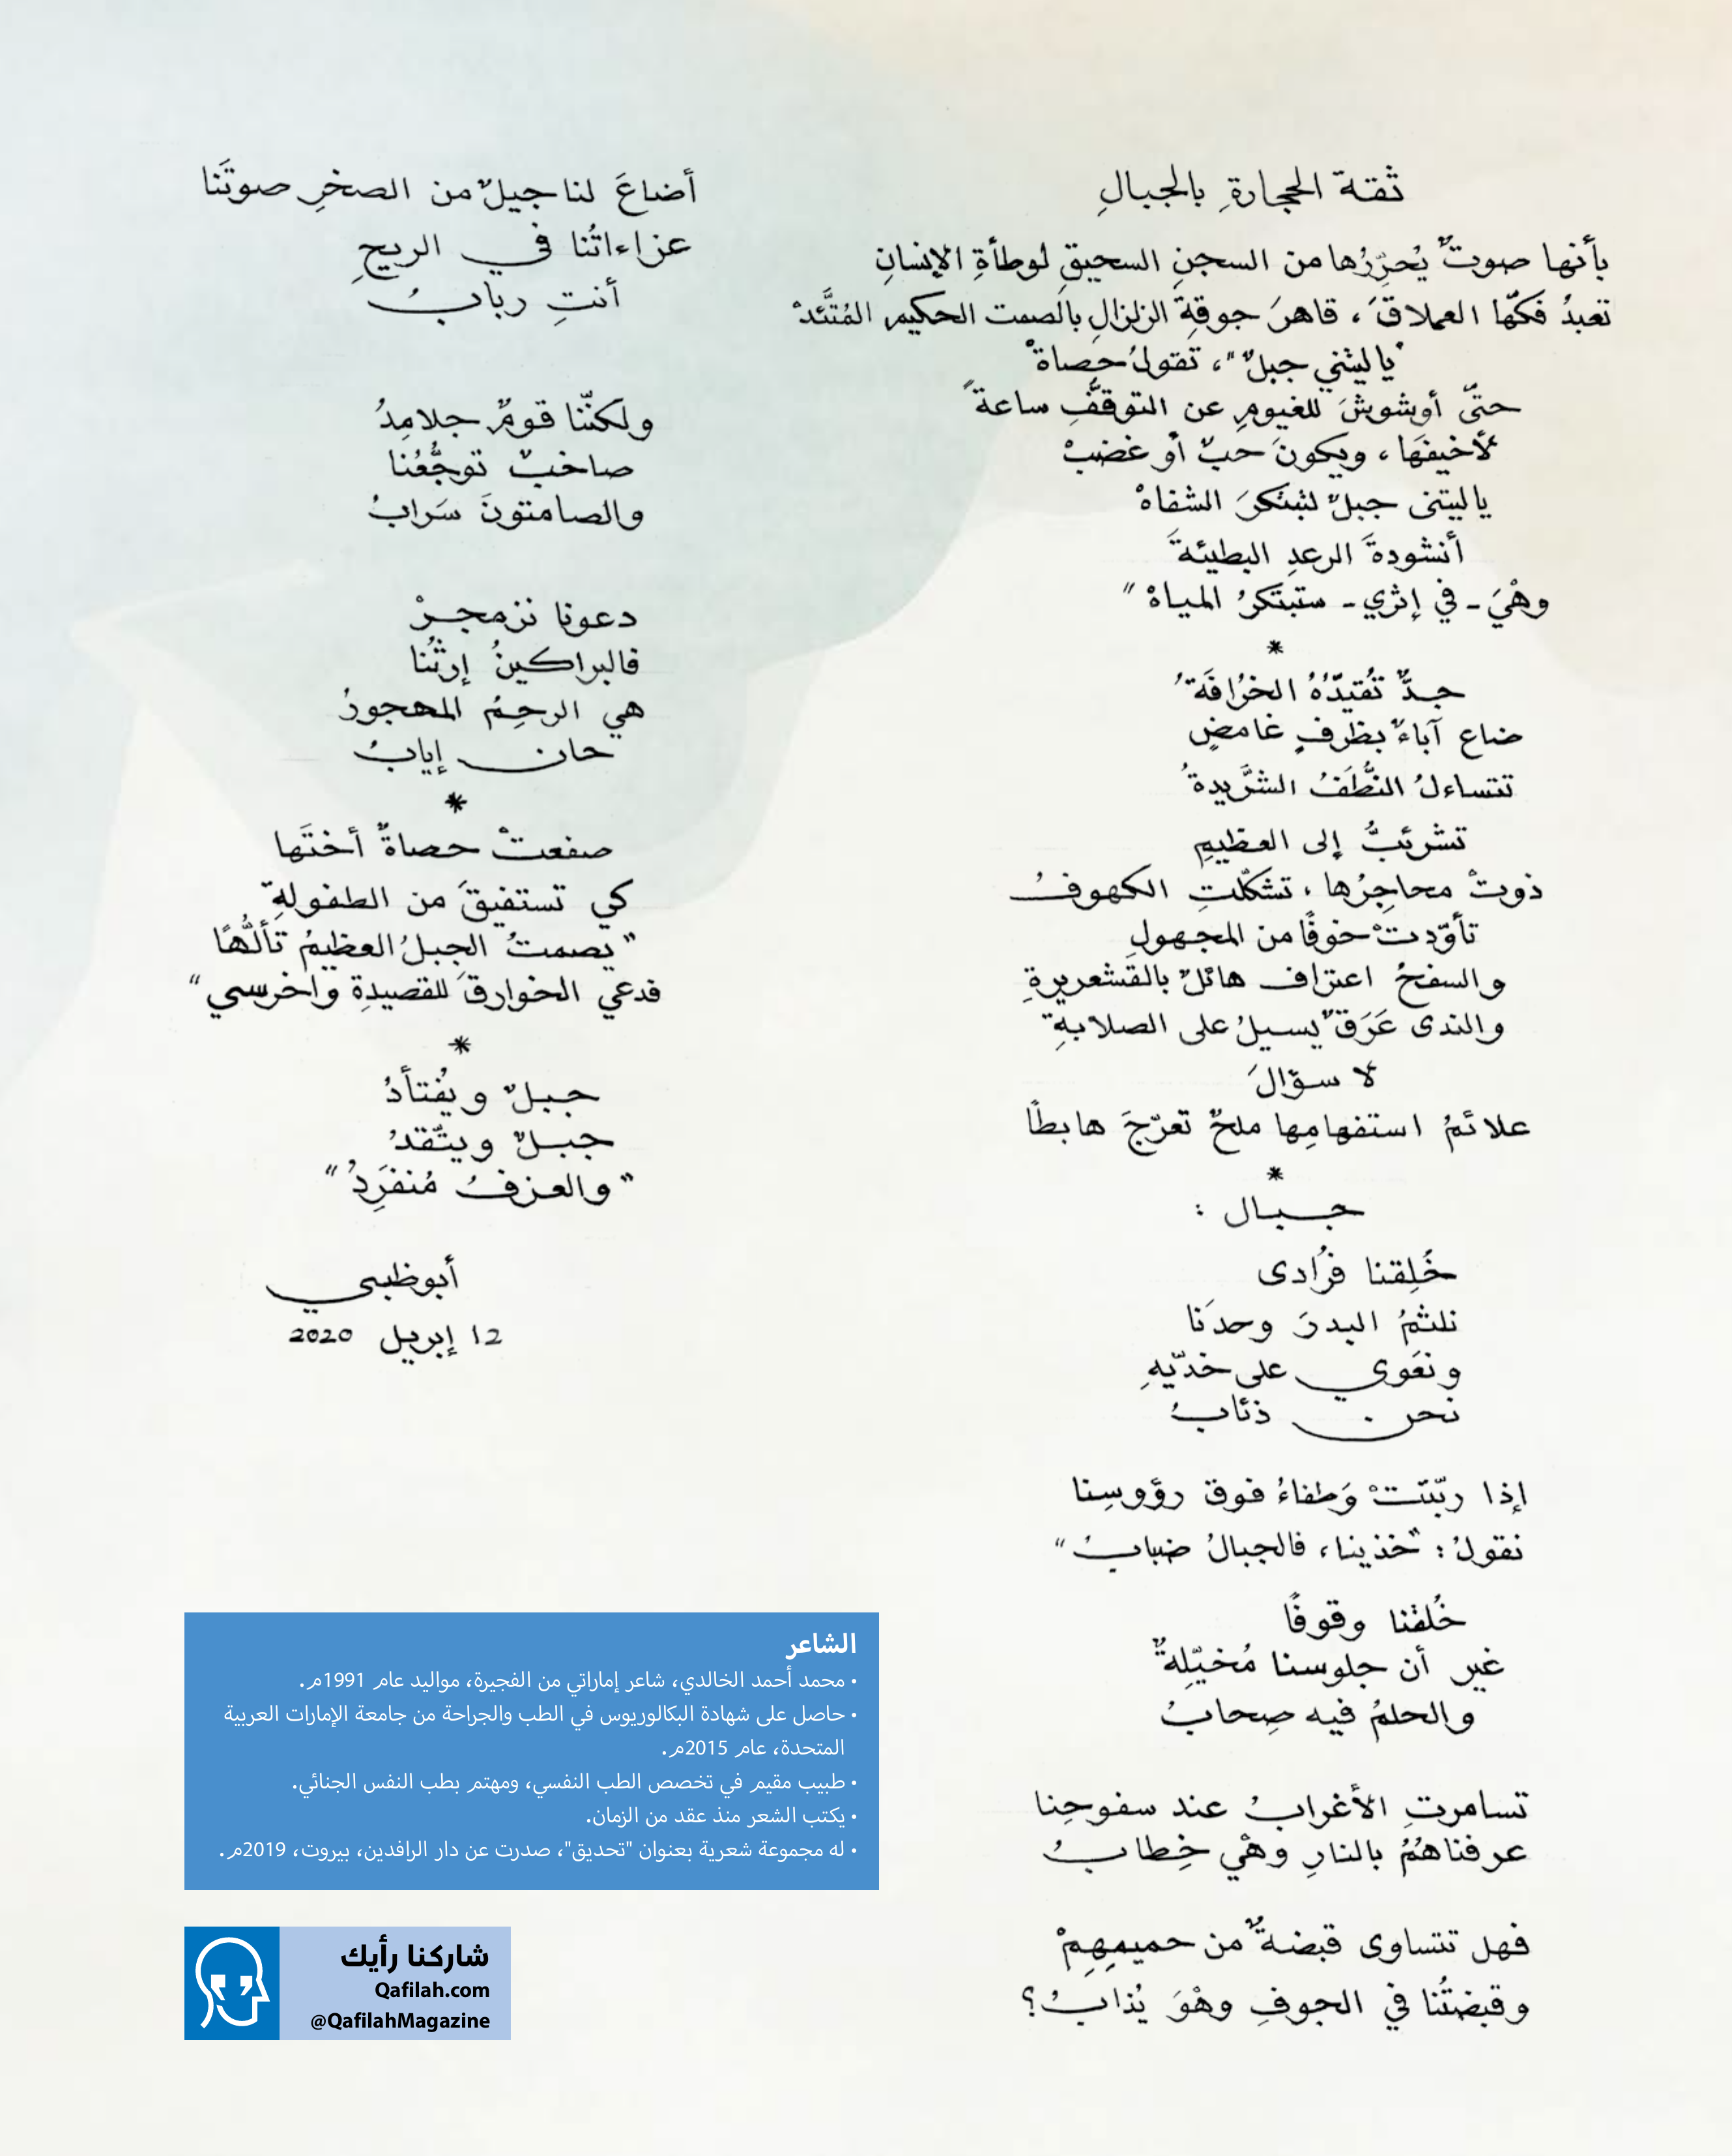 ثقة الحجارةِ بالجبالِ
بأنها صوتٌ يُحرّرُها من السجنِ السحيقِ لوطأةِ الإنسانِ
تعبدُ فكّها العملاقَ، قاهرَ جوقةِ الزلزالِ بالصمت الحكيم المُتَّئدْ
"ياليتني جبلٌ"، تقولُ حصاةْ
حتّى أوشوشَ للغيومِ عن التوقفِّ ساعةً
لأخيفَهَا، ويكونَ حبٌ أو غضبْ
ياليتني جبلٌ لتبتكرَ الشفاهْ
أنشودةَ الرعدِ البطيئةَ
وهْيَ - في إثري - ستبتكرُ المياهْ"
*
جدٌّ تُقيّدُهُ الخرُافَةُ
ضاع آباءٌ بظرفٍ غامضٍ
تتساءلُ النُّطَفُ الشَّريدةُ
تشرئبُّ إلى العظيمِ
ذوتْ محاجِرُها، تشكّلتِ الكهوفُ
تأوّدتْ خوفًا من المجهولِ
والسفحُ اعتراف هائلٌ بالقشعريرةِ
والندى عَرَقٌ يسيلُ على الصلابةِ
لا سؤالَ
علائمُ استفهامِها ملحٌ تعرّجَ هابطًا
*
جبال :
خُلِقنا فرُادى
نلثمُ البدرَ وحدَنا
ونعَوي على خدّيهِ
نحن ذئابُ
إذا ربّتتْ وَطفاءُ فوق رؤوسِنا
نقولُ: "خذينا، فالجبالُ ضبابُ"
خُلقْنا وقوفًا
غير أن جلوسنا مُخيّلِةٌ
والحلمُ فيه صِحابُ
تسامرتِ الأغرابُ عند سفوحِنا
عرفناهُمُ بالنارِ وهْي خِطابُ
فهل تتساوى قبضةٌ من حميمِهِمْ
وقبضتُنا في الجوفِ وهْوَ يُذابُ؟
أضاعَ لنا جيلٌ من الصخرِ صوتَنا
عزاءاتُنا في الريحِ
أنتِ ربابُ
ولكنّنا قومٌ جلامِدُ
صاخبٌ توجُّعُنا
والصامتونَ سَرابُ
دعونا نزمجرْ
فالبراكينُ إرثُنا
هي الرحِمُ المهجورُ
حان إيابُ
*
صفعتْ حصاةٌ أختَها
كي تستفيقَ من الطفولةِ
"يصمتُ الجبلُ العظيمُ تألُّهًا
فدعي الخوارقَ للقصيدةِ واخرسي"
*
جبلٌ ويُفتأدُ
جبلٌ ويتّقدُ
"والعزفُ مُنفَرِدُ"
أبوظبي
12 إبريل 2020
الشاعر
• محمد أحمد الخالدي، شاعر إماراتي من الفجيرة، مواليد عام 1991م.
• حاصل على شهادة البكالوريوس في الطب والجراحة من جامعة الإمارات العربية
المتحدة، عام 2015م.
• طبيب مقيم في تخصص الطب النفسي، ومهتم بطب النفس الجنائي.
• يكتب الشعر منذ عقد من الزمان.
• له مجموعة شعرية بعنوان "تحديق"، صدرت عن دار الرافدين، بيروت، 2019م.
شاركنا رأيك
Qafilah.com
@QafilahMagazine